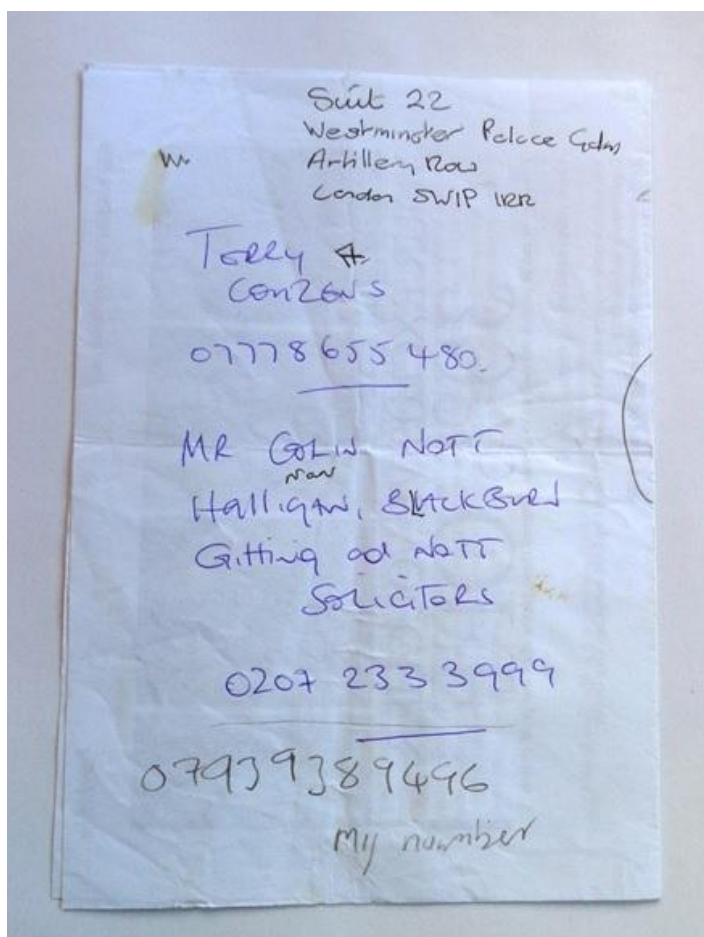 Suit 22
Westminster Palace Gdns
Artillery Row
London SW1P 1RR
Terry A.
CONZENS
07778 655 480.
MR COLIN NOTT
Halligan, BLACKBURN
Gitting and NOTT
SOLICITORS
0207 233 3999
07939389496
My number